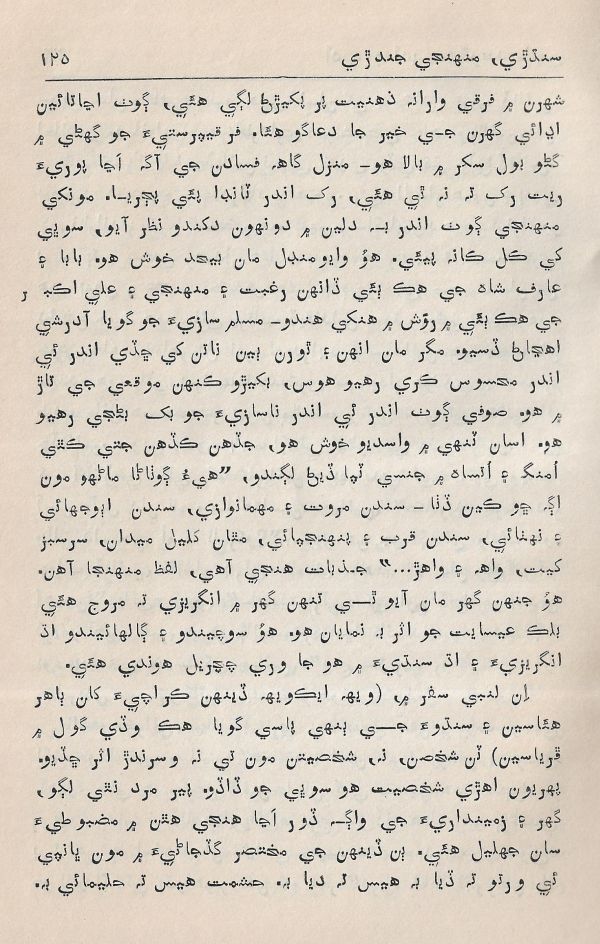 سنڌڙي، منهنجي جندڙي ١٢٥
شهرن ۾ فرقي وارانہ ذهنيت پر پکيڙڻ لڳي هئي، ڳوٺ اڃاتائين
اڍائي گهرن جي خير جا دعاگو هئا. فرقيپرستيءَ جو گهڻي ۾
گهڻو ٻول سکر ۾ بالا هو۔ منزل گاهہ فسادن جي آگ اڃا پوريءَ
ريت رک تہ نہ ٿي هئي، رک اندر ٽانڊا پئي ٻچريا. مونکي
منهنجي ڳوٺ اندر بہ دلين ۾ دونهون دکندو نظر آيو، سوڀي
کي ڪل ڪانہ پيئي. هوُ وايومنڊل مان بيحد خوش هو. بابا ۽
عارف شاهہ جي هڪ ٻئي ڏانهن رغبت ۽ منهنجي ۽ علي اڪبر
جي هڪ ٻئي ۾ روَش ۾ هنکي هندو۔ مسلم سازيءَ جو گويا آدرشي
اهڃاڻ ڏسيو. مگر مان انهن ۽ ٿورن ٻين ناتن کي ڇڏي اندر ئي
اندر محسوس ڪري رهيو هوس، بکيڙو ڪنهن موقعي جي تاڙ
۾ هو. صوفي ڳوٺ اندر ئي اندر ناسازيءَ جو بک بڻجي رهيو
هو. اسان تنهي ۾ واسديو خوش هو، جڏهن ڪڏهن جتي ڪٿي
اُمنگ ۽ اُتساهہ ۾ جنسي ٽپا ڏيڻ لڳندو، ”هيءُ ڳوٺاڻا ماڻهو مون
اڳہ ڇو ڪين ڏٺا۔ سندن مروت ۽ مهمانوازي، سندن اٻوجهائي
۽ نهٺائي، سندن قرب ۽ پنهنجپائي، مٿان کليل ميدان، سرسبز
کيت، واهہ ۽ واهڙ...“ جذبات هنجي آهي، لفظ منهنجا آهن.
هوُ جنهن گهر مان آيو ٿي تنهن گهر ۾ انگريزي تہ مروج هئي
بلڪ عيسايت جو اثر بہ نمايان هو. هوُ سوچيندو ۽ ڳالهائيندو اڌ
انگريزيءَ ۽ اڌ سنڌيءَ ۾ هو جا وري چچريل هوندي هئي.
اِن لنبي سفر ۾، (ويهہ ايڪويهہ ڏينهن ڪراچيءَ کان ٻاهر
هئاسين ۽ سنڌوءَ جي ٻنهي پاسي گويا هڪ وڏي گول ۾
ڦرياسين) ٽن شخصن، نہ، شخصيتن مون تي نہ وسرندڙ اثر ڇڏيو.
پهريون اهڙي شخصيت هو سوڀي جو ڏاڏو. پير مرد نٿي لڳو،
گهر ۽ زمينداريءَ جي واڳہ ڏور اڃا هنجي هٿن ۾ مضبوطيءَ
سان جهليل هئي. ٻن ڏينهن جي مختصر گڏجاڻيءَ ۾ مون ڀانپي
ئي ورتو تہ ڏيا بہ هيس تہ ديا بہ. حشمت هيس تہ حليمائي بہ.